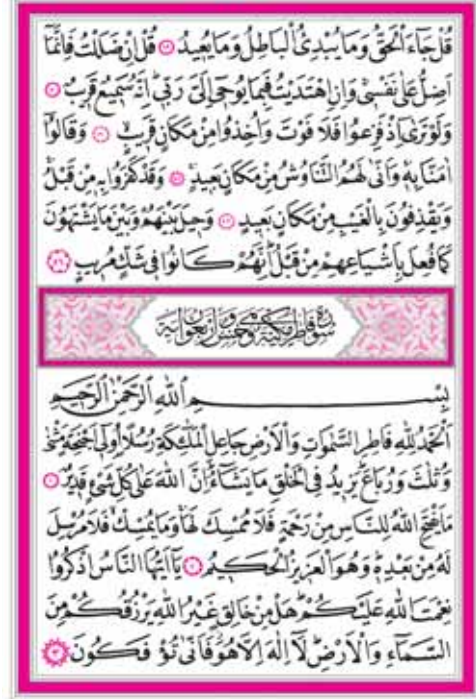 قُلْ جَٓاءَ الْحَقُّ وَمَا يُبْدِئُ الْبَاطِلُ وَمَا يُعٖيدُ ﴿٤٩﴾ قُلْ اِنْ ضَلَلْتُ فَاِنَّمَٓا
اَضِلُّ عَلٰى نَفْسٖى وَاِنِ اهْتَدَيْتُ فَبِمَا يُوحٖٓى اِلَىَّ رَبّٖى اِنَّهُ سَمٖيعٌ قَرٖيبٌ ﴿٥٠﴾
وَلَوْ تَرٰٓى اِذْ فَزِعُوا فَلَا فَوْتَ وَاُخِذُوا مِنْ مَكَانٍ قَرٖيبٍ ﴿٥١﴾ وَقَالُٓوا
اٰمَنَّا بِهٖ وَاَنّٰى لَهُمُ التَّنَاوُشُ مِنْ مَكَانٍ بَعٖيدٍ ﴿٥٢﴾ وَقَدْ كَفَرُوا بِهٖ مِنْ قَبْلُ
وَيَقْذِفُونَ بِالْغَيْبِ مِنْ مَكَانٍ بَعٖيدٍ ﴿٥٣﴾ وَحٖيلَ بَيْنَهُمْ وَبَيْنَ مَا يَشْتَهُونَ
كَمَا فُعِلَ بِاَشْيَاعِهِمْ مِنْ قَبْلُ اِنَّهُمْ كَانُوا فٖى شَكٍّ مُرٖيبٍ ﴿٥٤﴾
سورة فاطر مكية وهي خمس واربعون اية
بِسْمِ اللّٰهِ الرَّحْمٰنِ الرَّحٖيمِ
اَلْحَمْدُ لِلّٰهِ فَاطِرِ السَّمٰوَاتِ وَالْاَرْضِ جَاعِلِ الْمَلٰٓئِكَةِ رُسُلًا اُولٖٓى اَجْنِحَةٍ مَثْنٰى
وَثُلٰثَ وَرُبَاعَ يَزٖيدُ فِى الْخَلْقِ مَا يَشَٓاءُ اِنَّ اللّٰهَ عَلٰى كُلِّ شَیْءٍ قَدٖيرٌ ﴿١﴾
مَا يَفْتَحِ اللّٰهُ لِلنَّاسِ مِنْ رَحْمَةٍ فَلَا مُمْسِكَ لَهَا وَمَا يُمْسِكْ فَلَا مُرْسِلَ
لَهُ مِنْ بَعْدِهٖ وَهُوَ الْعَزٖيزُ الْحَكٖيمُ ﴿٢﴾ يَٓا اَيُّهَا النَّاسُ اذْكُرُوا
نِعْمَتَ اللّٰهِ عَلَيْكُمْ هَلْ مِنْ خَالِقٍ غَيْرُ اللّٰهِ يَرْزُقُكُمْ مِنَ
السَّمَٓاءِ وَالْاَرْضِ لَٓا اِلٰهَ اِلَّا هُوَ فَاَنّٰى تُؤْفَكُونَ ﴿٣﴾